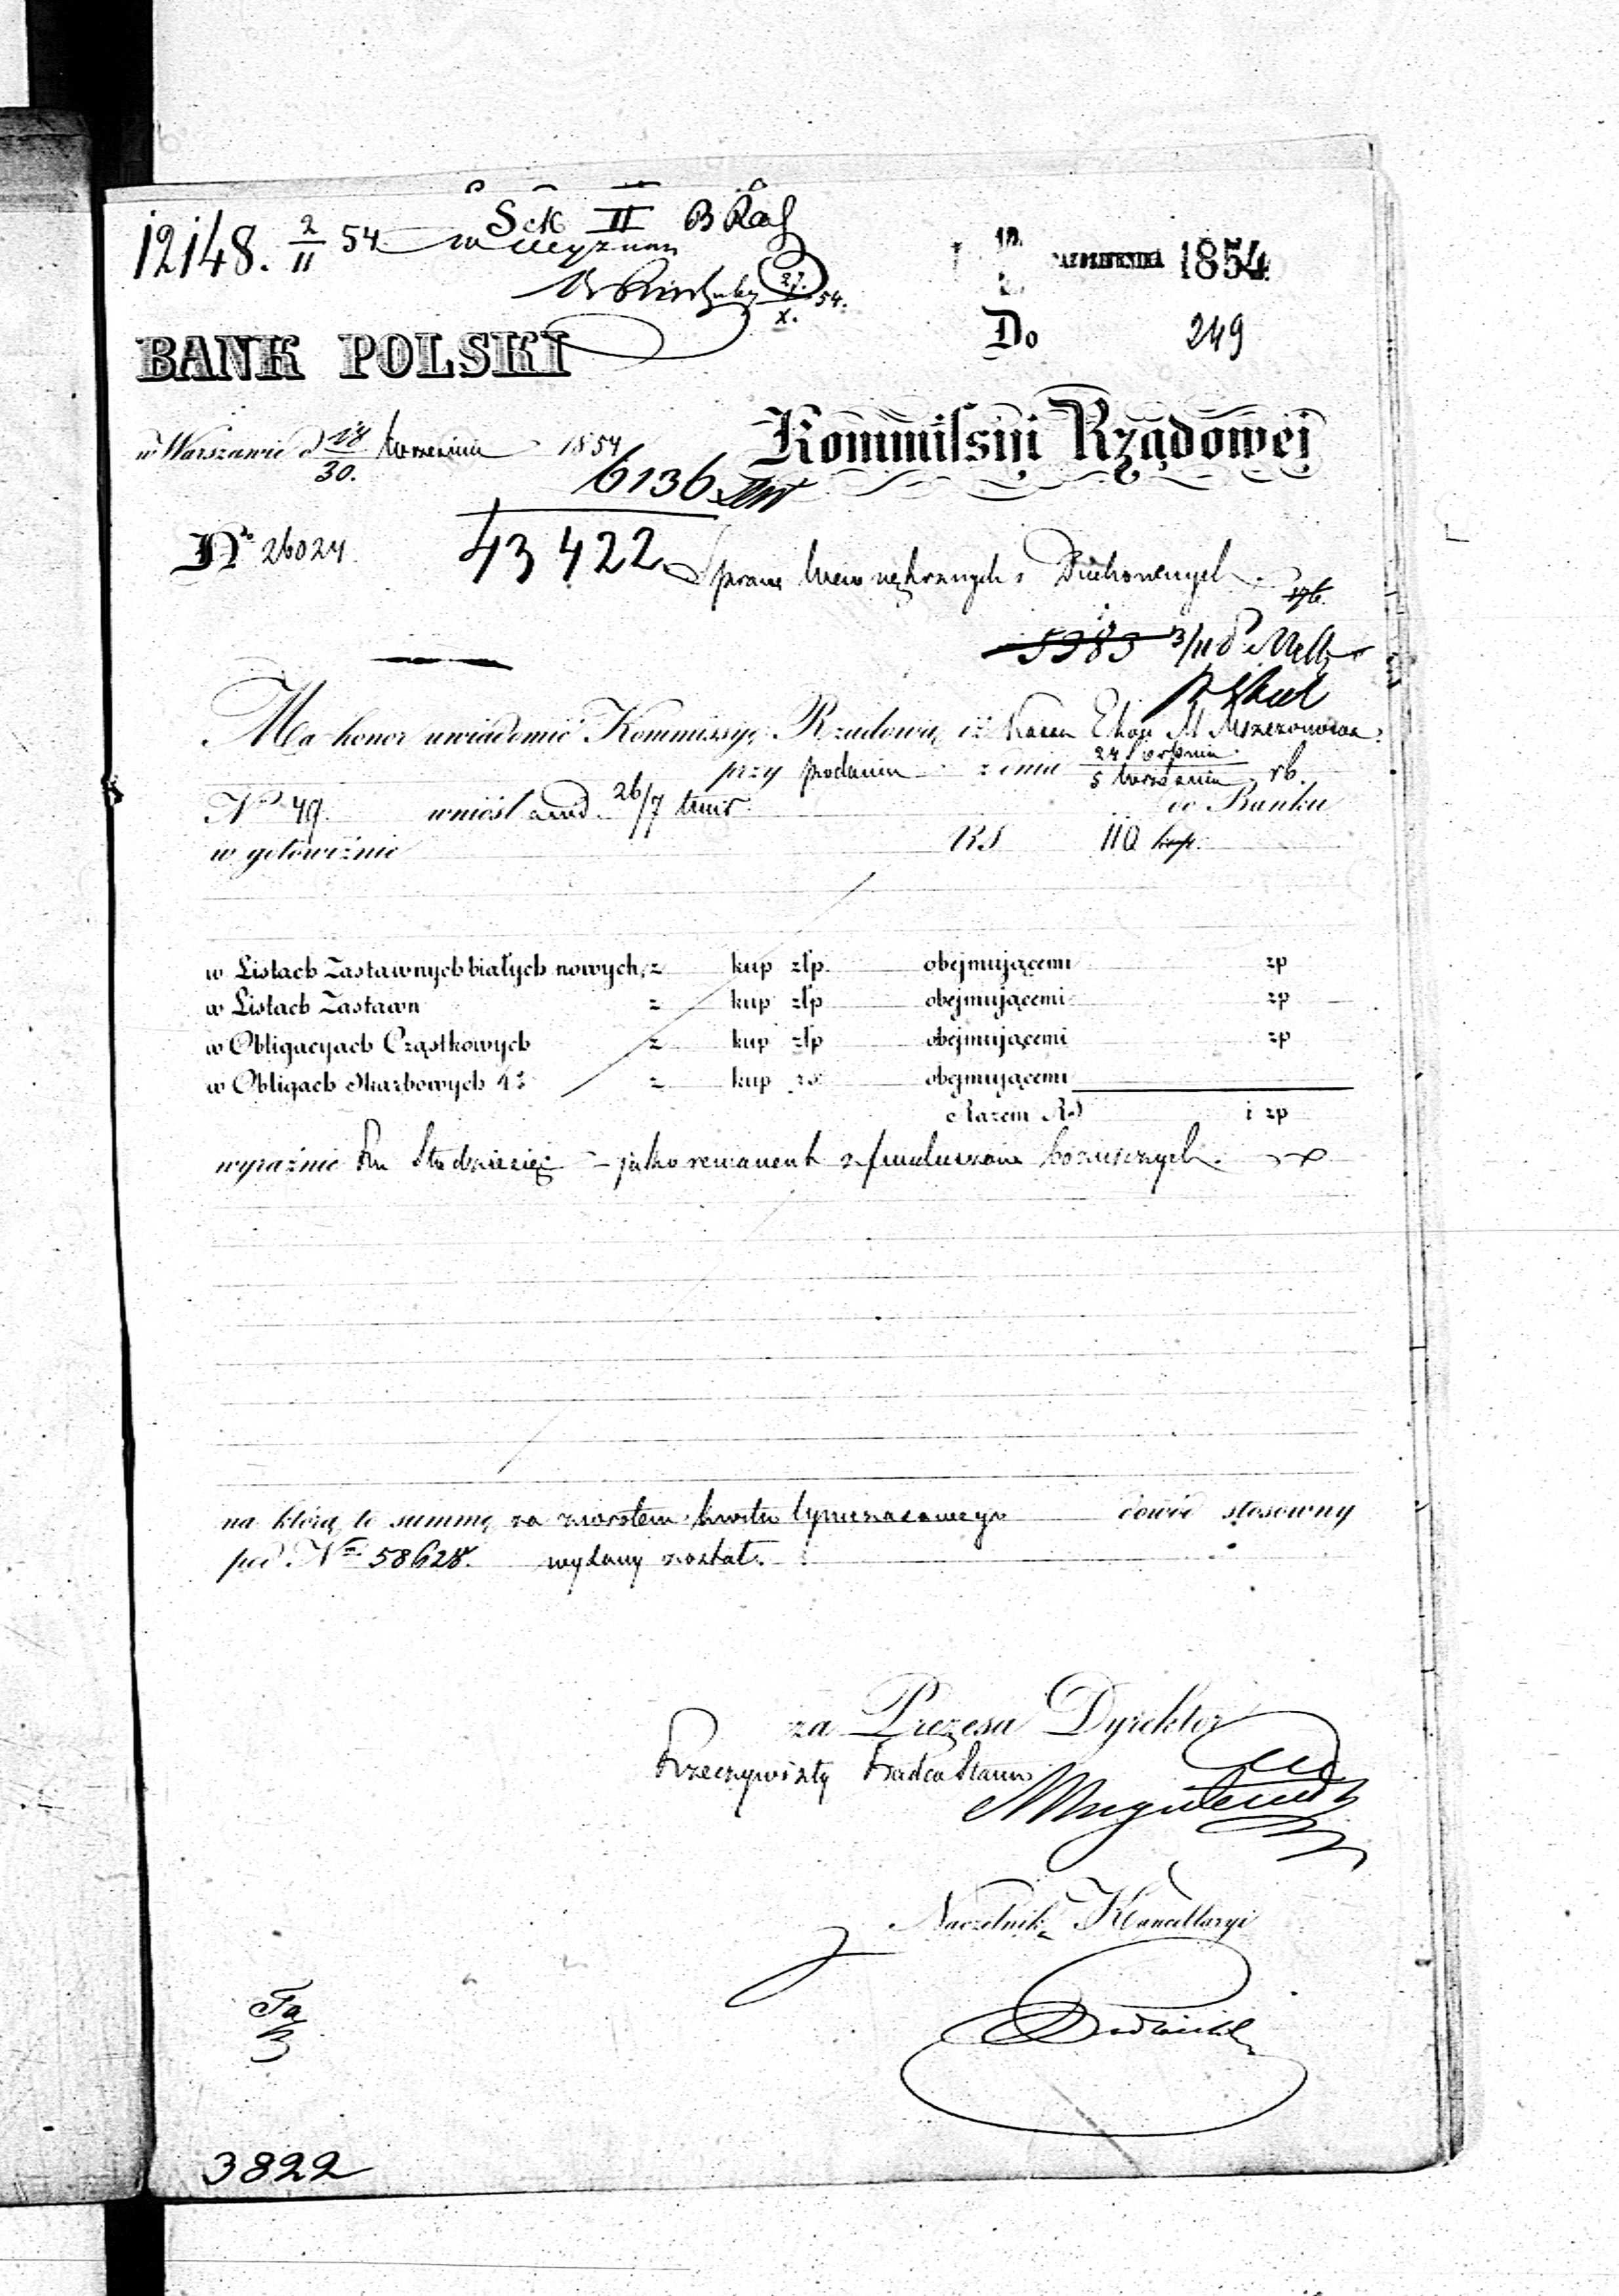 12148. 2/11 54
Sek II
27/X. 54.
PAZDZIERNIKA 1854
Do 249
BANK POLSKI
w Warszawie d 18/30. Września 1854
Kommissyi Rządowej
6136
43 422
No 26024
Spraw Wewnętrznych i Duchownych
5983 3/11
Ma honor uwiadomić Kommissyę Rządową iż Kassa Ekon M Mszczonowa
przy podaniu z dnia 24 Sierpnia/5 Września rb.
No 49. wniósł 26/7 do Banku
w gotowiźnie RS 110 kop.
w Listach Zastawnych białych nowych, z kup złp. obejmującemi zp
w Listach Zastawn z kup złp obejmującemi zp
w Obligacyach Cząstkowych z kup złp obejmującemi zp
w Obligach Skarbowych 4% z kup rs obejmującemi
Razem RS i zp
wyraźnie Rs Sto dziesięć jako remanent z funduszów bożniczych.
na którą to summę za zwrotem kwitu tymczasowego dowód stosowny
pod Nm 58628. wydany został.
za Prezesa Dyrektor
Rzeczywisty Radca Stanu
Naczelnik Kancellaryi
3822